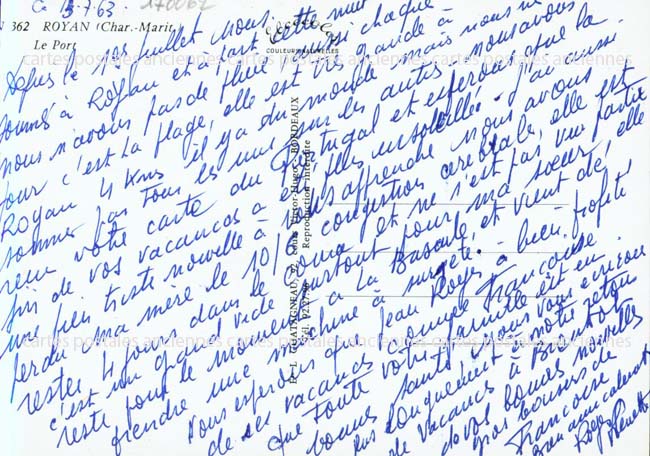 Ce 13-7-63
170062
N 362 ROYAN (Char.-Marit.)
Le Port
COULEURS NATURELLES
cartes postales anciennes cartes postales anciennes cartes postales anciennes
Depuis le 1er juillet nous
à Royan et à part cette nuit
nous n'avons pas de pluie ici chaque
jour c'est la plage, elle est très grande à
Royan 4 kms il y a du monde mais nous ne
sommes pas tous les uns sur les autres. nous avons
reçu votre carte du Portugal et espérons que la
fin de vos vacances a été plus ensoleillée - J'ai aussi
une bien triste nouvelle à vous apprendre nous avons
perdu ma mère le 10/ congestion cérébrale, elle est
restée 4 jours dans le coma et ne s'est pas vue partir
c'est un grand vide surtout pour ma sœur, elle
reste pour le moment à La Bassule, et vient de
prendre une machine à
Vous espérons que Jean Roger a bien profité
de ses vacances comme Françoise
que toute votre famille est en
bonne santé, nous vous écrirons
plus longuement à notre retour
de vacances à
de vos bonnes nouvelles
gros baisers de
Françoise
Roger
D. GATIGNEAU, 97, Cours Victor-Hugo - BORDEAUX
Reproduction interdite
cartes postales anciennes cartes postales anciennes cartes postales anciennes